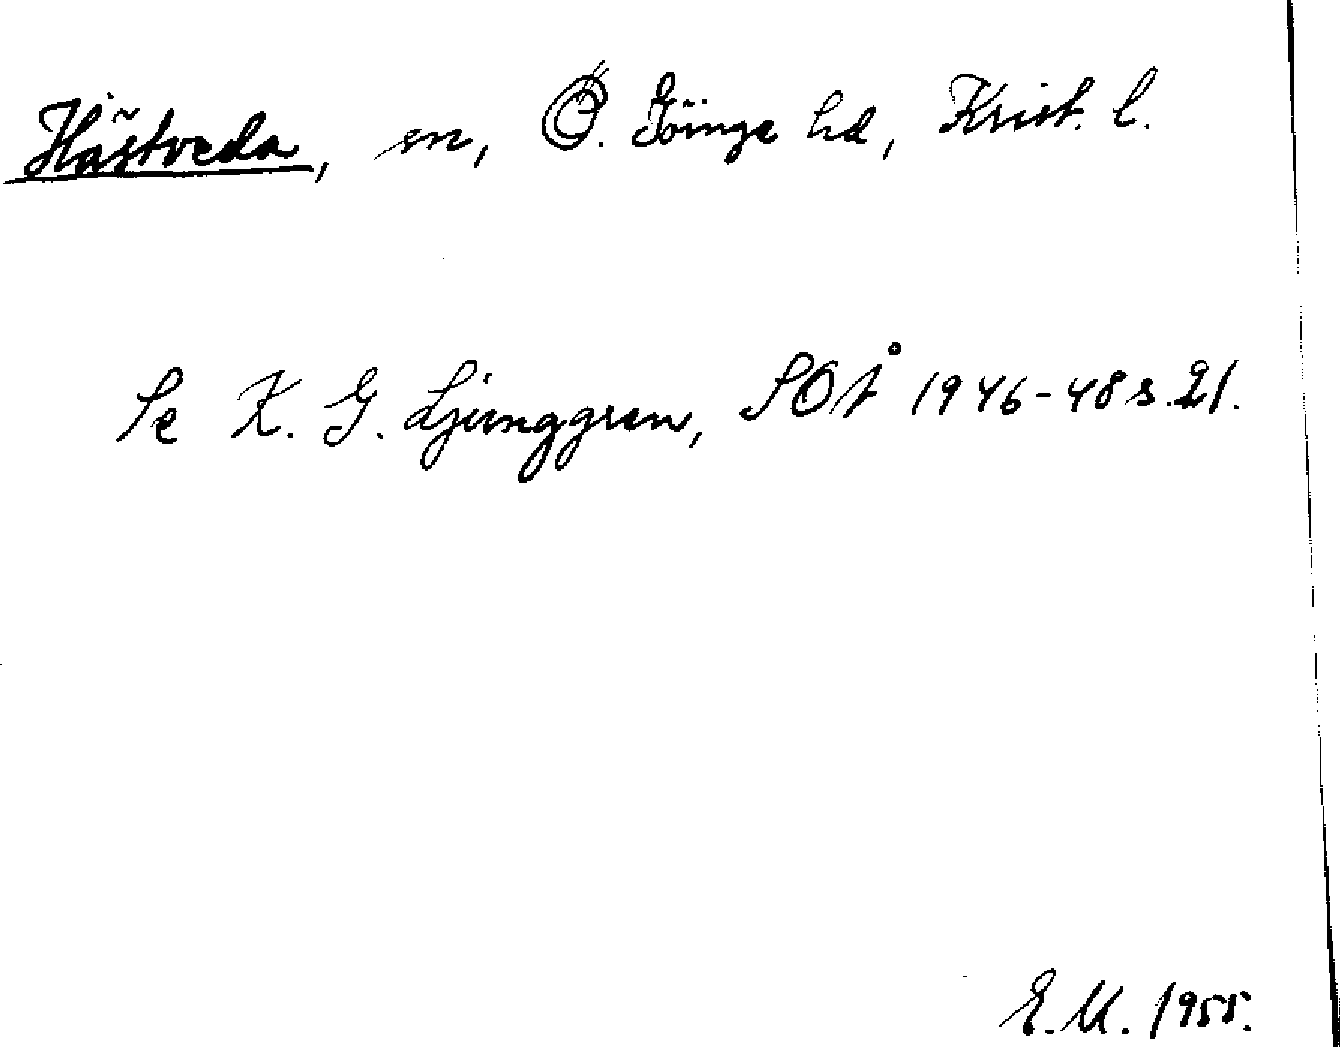 Hästveda, sn, Ö. Göinge hd, Krist. l.
Se K. G. Ljunggren, SOÅ 1946-48 s. 21.
E.M. 1955.